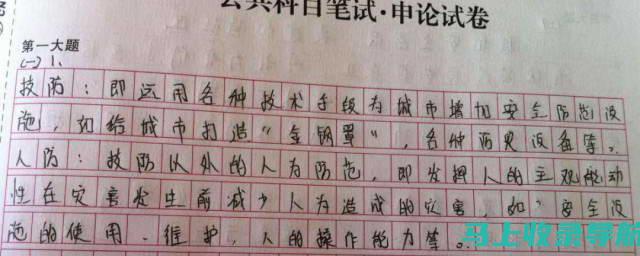 公共科目笔试·申论试卷
第一大题
(一) 1、
技防：即运用各种技术手段为城市增加安全防范设
施，如给城市打造“金钢罩”，各种防灾设备等。
人防：技防以外的人为防范，即发挥人的主观能动
性在灾害发生前减少人为造成的灾害，如：安全设
施的使用、维护，人的操作能力等。
马上收录导航